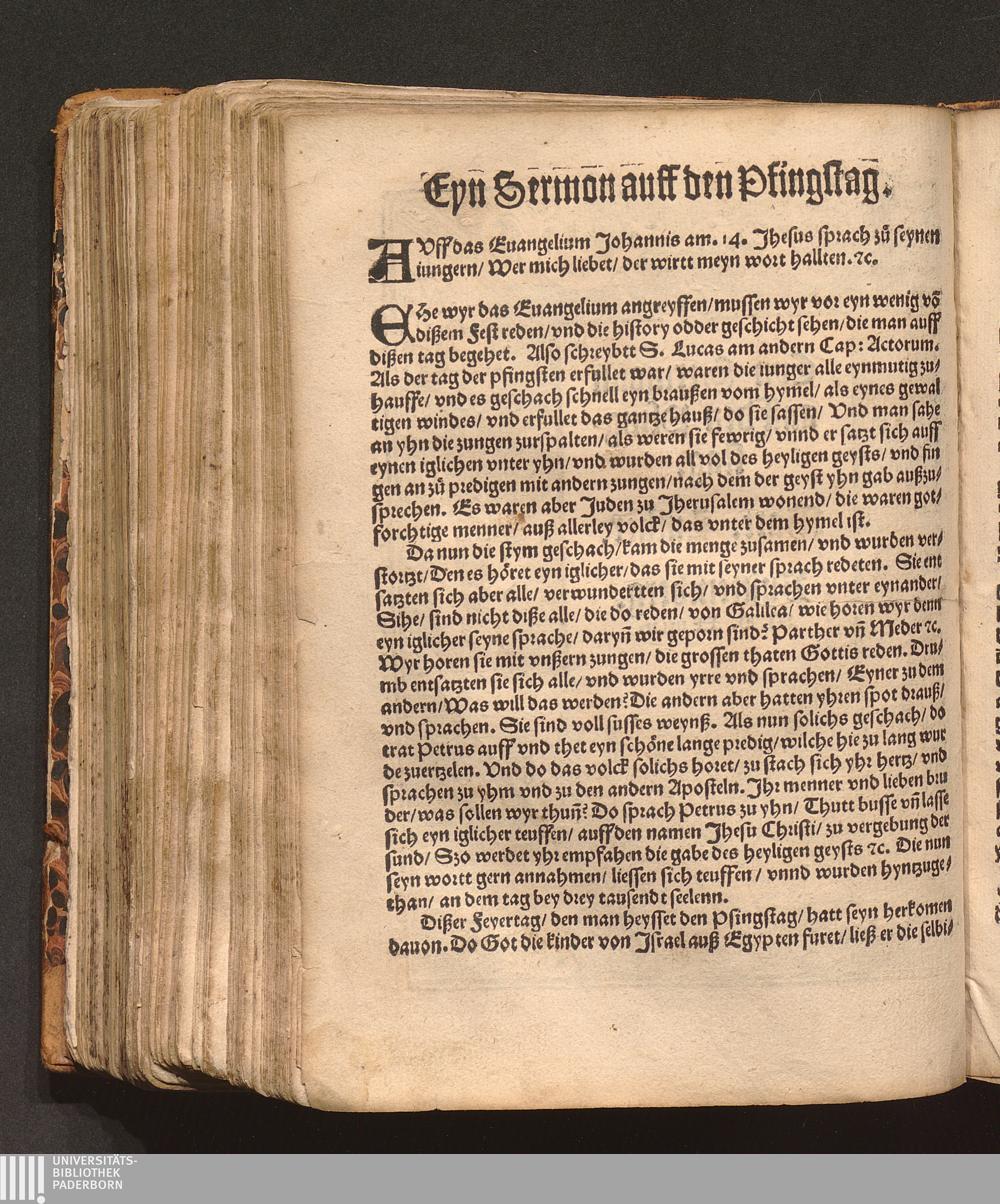 Eyn̄ Sermon auff den Pfingstag.
AVff das Euangelium Johannis am. 14. Jhesus sprach zů seynen
iungern/ Wer mich liebet/ der wirtt meyn wort hallten. ꝛc.
EHe wyr das Euangelium angreyffen/ mussen wyr vor eyn wenig võ
dißem Fest reden/ vnd die history odder geschicht sehen/ die man auff
dißen tag begehet. Also schreybtt S. Lucas am andern Cap: Actorum.
Als der tag der pfingsten erfullet war/ waren die iunger alle eynmutig zu⸗
hauffe/ vnd es geschach schnell eyn braußen vom hymel/ als eynes gewal
tigen windes/ vnd erfullet das gantze hauß/ do sie sassen/ Vnd man sahe
an yhn die zungen zurspalten/ als weren sie fewrig/ vnnd er satzt sich auff
eynen iglichen vnter yhn/ vnd wurden all vol des heyligen geysts/ vnd fin
gen an zů predigen mit andern zungen/ nach dem der geyst yhn gab außzu⸗
sprechen. Es waren aber Juden zu Jherusalem wonend/ die waren got⸗
forchtige menner/ auß allerley volck/ das vnter dem hymel ist.
Da nun die stym geschach/ kam die menge zusamen/ vnd wurden ver⸗
stortzt/ Den es hôret eyn iglicher/ das sie mit seyner sprach redeten. Sie ent
satzten sich aber alle/ verwundertten sich/ vnd sprachen vnter eynander/
Sihe/ sind nicht diße alle/ die do reden/ von Galilea/ wie horen wyr denn
eyn iglicher seyne sprache/ daryn̄ wir geporn sind? Parther vn̄ Meder ꝛc.
Wyr horen sie mit vnßern zungen/ die grossen thaten Gottis reden. Dru⸗
mb entsatzten sie sich alle/ vnd wurden yrre vnd sprachen/ Eyner zu dem
andern/ Was will das werden? Die andern aber hatten yhren spot drauß/
vnd sprachen. Sie sind voll susses weynß. Als nun solichs geschach/ do
trat Petrus auff vnd thet eyn schône lange predig/ wilche hie zu lang wur
de zuertzelen. Vnd do das volck solichs horet/ zu stach sich yhr hertz/ vnd
sprachen zu yhm vnd zu den andern Aposteln. Jhr menner vnd lieben bru
der/ was sollen wyr thun? Do sprach Petrus zu yhn/ Thutt busse vn̄ lasse
sich eyn iglicher teuffen/ auff den namen Jhesu Christi/ zu vergebung der
sund/ Szo werdet yhr empfahen die gabe des heyligen geysts ꝛc. Die nun
seyn wortt gern annahmen/ liessen sich teuffen/ vnnd wurden hyntzuge⸗
than/ an dem tag bey drey tausendt seelenn.
Dißer Feyertag/ den man heysset den Pfingstag/ hatt seyn herkomen
dauon. Do Got die kinder von Israel auß Egypten furet/ ließ er die selbi⸗
UNIVERSITÄTS-
BIBLIOTHEK
PADERBORN